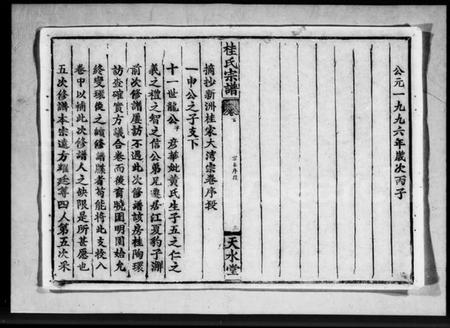 公元一九九六年歲次丙子
桂氏宗譜
卷首
天水堂
摘抄新洲桂家大灣宗卷序授
一申公之子支下
十一世龍公 彦華妣黄氏生子五之仁之
義之禮之智之信公弟兄遷居江夏豹子澥
前次修譜屢訪不遇此次修譜該房桂陶環
訪查確實方議合卷而後宵曉圍明園始允
終變環俊之續修譜牒者苟能將此支收入
卷中以補此次修譜人之缺限是所甚愿也
五次修譜本宗遠方難 尊四人第五次采